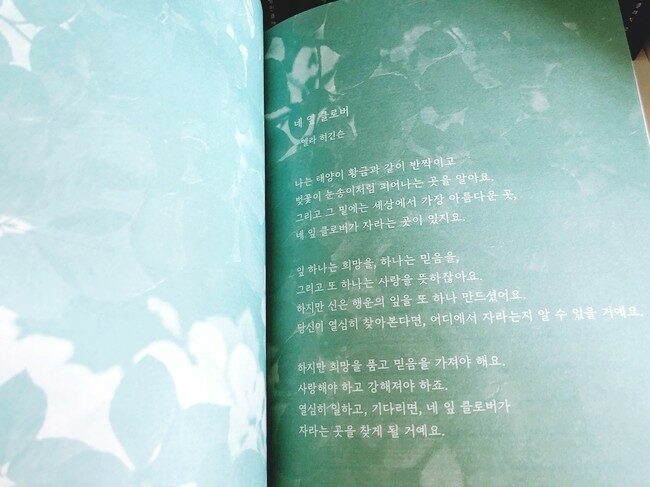 네 잎 클로버
엘라 히긴슨
나는 태양이 황금과 같이 반짝이고
벚꽃이 눈송이처럼 피어나는 곳을 알아요.
그리고 그 밑에는 세상에서 가장 아름다운 곳,
네 잎 클로버가 자라는 곳이 있지요.
잎 하나는 희망을, 하나는 믿음을,
그리고 또 하나는 사랑을 뜻하잖아요.
하지만 신은 행운의 잎을 또 하나 만드셨어요.
당신이 열심히 찾아본다면, 어디에서 자라는지 알 수 있을 거예요.
하지만 희망을 품고 믿음을 가져야 해요.
사랑해야 하고 강해져야 하죠.
열심히 일하고, 기다리면, 네 잎 클로버가
자라는 곳을 찾게 될 거예요.